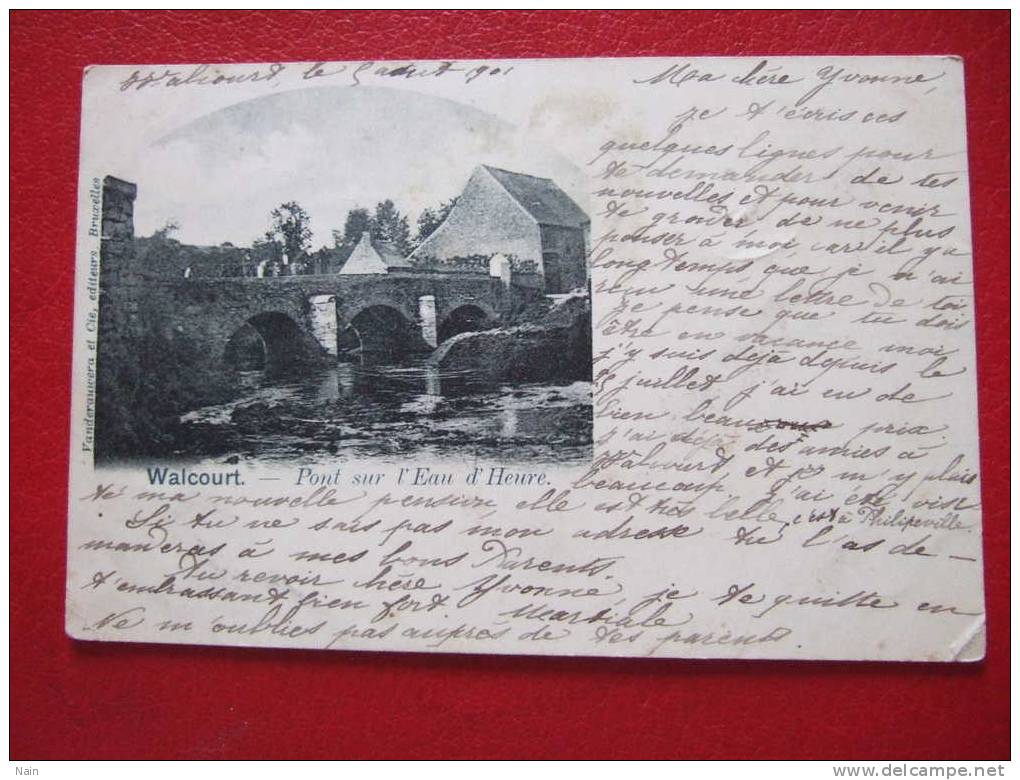 Walcourt, le 5 aout 901
Ma chère Yvonne,
je t'écris ces
quelques lignes pour
te demander de tes
nouvelles et pour venir
te gronder de ne plus
penser à moi, car il y a
longtemps que je n'ai
reçu une lettre de toi
je pense que tu dois
être en vacance moi
j'y suis déjà depuis le
juillet j'ai eu de
bien beaucoup prix.
j'ai déjà des amies à
Walcourt et je m'y plais
beaucoup j'ai été visi
té ma nouvelle pension, elle est très belle, c'est à Philipeville
Si tu ne sais pas mon adresse tu l'as de-
manderas à mes bons Parents.
Au revoir chère Yvonne, je te quitte en
t'embrassant bien fort
Martiale
Ne m'oublies pas auprès de tes parents.
Vanderauwera et Cie, editeurs, Bruxelles
Walcourt. — Pont sur l'Eau d'Heure.
Nain
www.delcampe.net